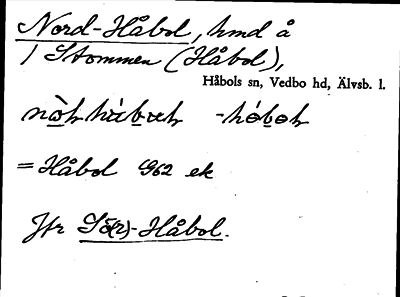 Nord-Håbol, hmd å
1 Stommen (Håbol),
Håbols sn, Vedbo hd, Älvsb. l.
= Håbol 962 ek
Jfr Sö(r)-Håbol.